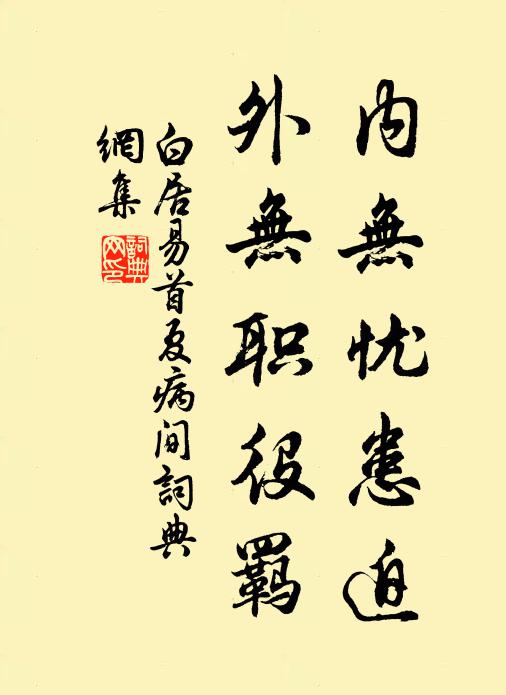 内無忧患迫
外無职役羈
白居易首夏病间詞典
網集
詞典
网印